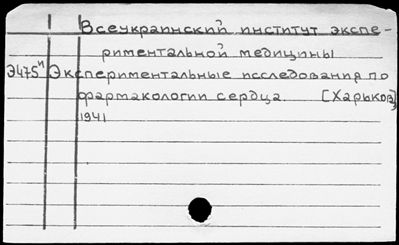 Всеукраинский институт экспе-
риментальной медицины
Э475и Экспериментальные исследования по
фармакологии сердца. [Харьков]
1941